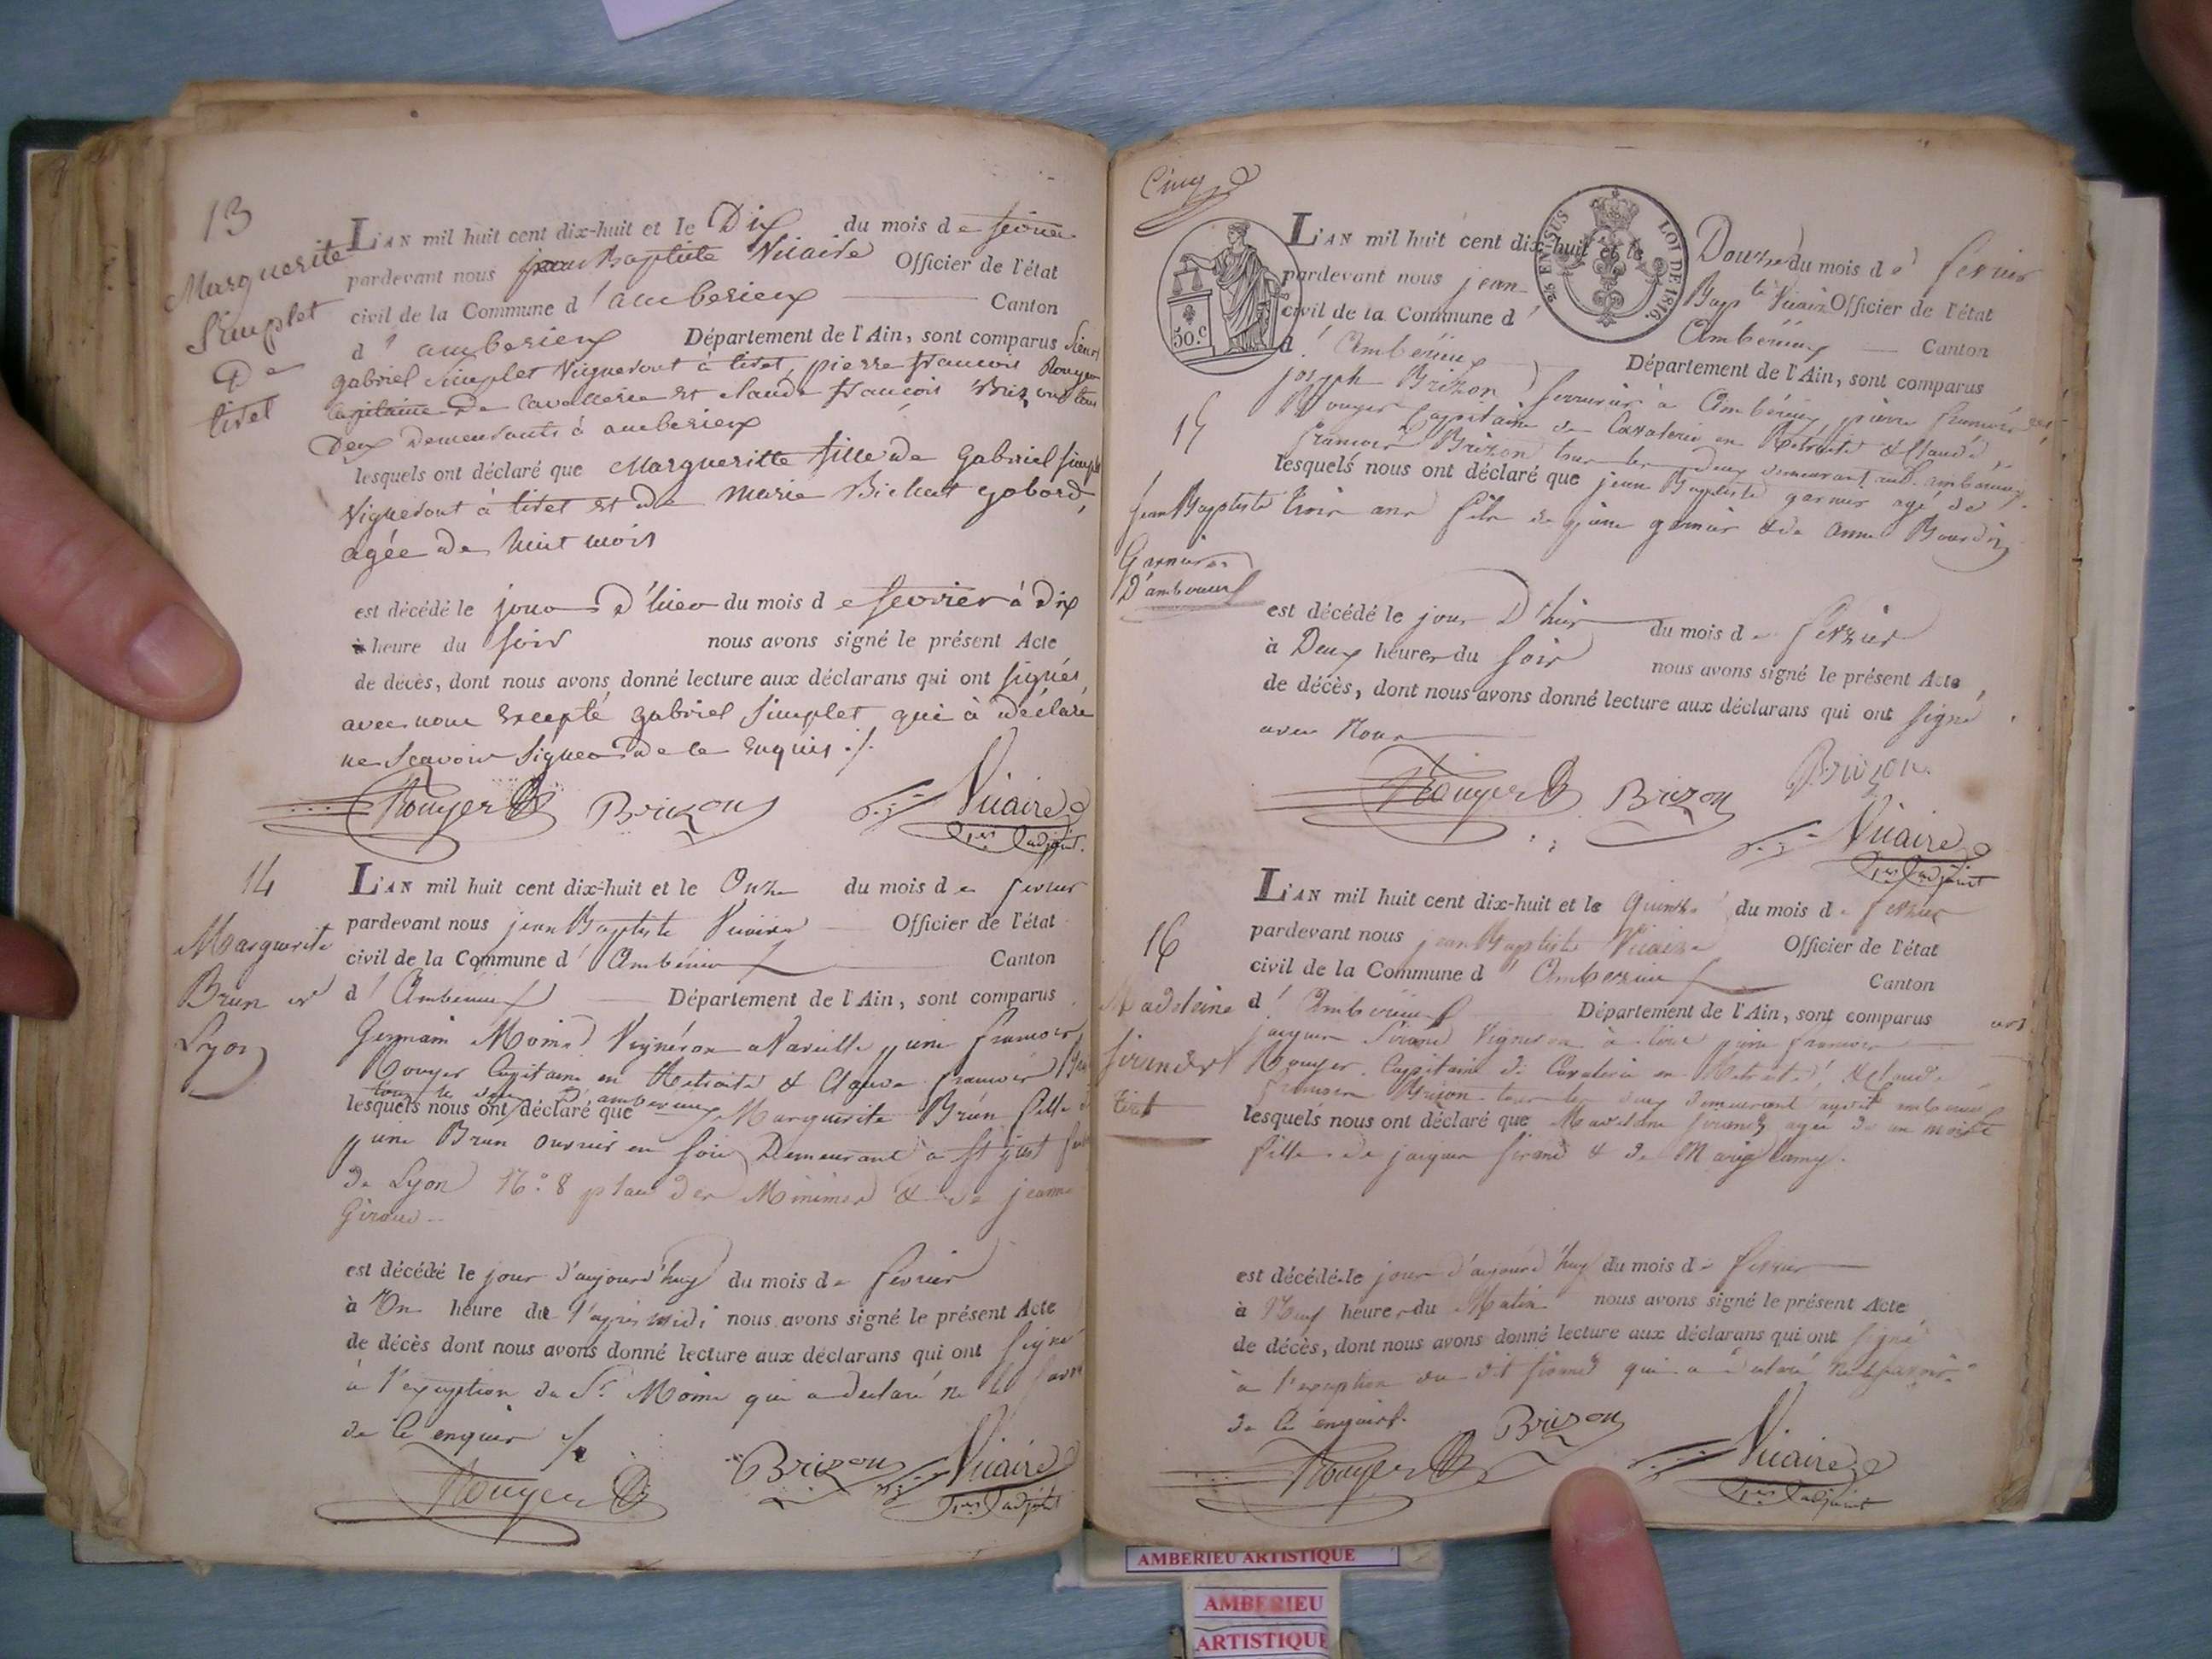 13
Marguerite
Simplet
De
tiret
L'AN mil huit cent dix-huit et le Dix du mois de fevrier
pardevant nous jean Baptiste Vicaire Officier de l'état
civil de la Commune d'amberieux Canton
d'amberieux Département de l'Ain, sont comparus Sieurs
gabriel Simplet Vigneront à tiret, pierre francois Rouyer
Capitaine De Cavallerie et claude francois Brizon tous
Deux Demeurants à amberieux
lesquels ont déclaré que Margueritte fille de Gabriel Simplet
Vigneront à tiret et de Marie Bichat gobord,
agée de huit mois
est décédé le jour D'hier du mois de fevrier à dix
heure du soir nous avons signé le présent Acte
de décès, dont nous avons donné lecture aux déclarans qui ont signés
avec nous Excepté gabriel Simplet qui à déclaré
ne Scavoir Signer de ce Enquis ./.
Rouyer Brizon Vicaire
1er adjoint.
14
Marguerite
Brun de
Lyon
L'AN mil huit cent dix-huit et le Onze du mois de fevrier
pardevant nous jean Baptiste Vicaire Officier de l'état
civil de la Commune d'Ambérieux Canton
d'Ambérieux Département de l'Ain, sont comparus
Germain Moine Vignéron a Vareille pierre francois
Rouyer Capitaine en Retraite & Claude francois
tous les deux d'amberieux
lesquels nous ont déclaré que Marguerite Brun fille
pierre Brun ouvrier en soie Demeurant a St just
de Lyon N.o 8 place des Minimes & de jeanne
Giraud
est décédé le jour d'aujourd'huy du mois de fevrier
à Un heure de l'après midi nous avons signé le présent Acte
de décès dont nous avons donné lecture aux déclarans qui ont signé
à l'exception du Sr Moine qui a declaré ne le savoir
de ce enquis ./.
Rouyer Brizon Vicaire
1er adjoint
Cinq
50.c
EN SUS
LOI DE 1816.
L'AN mil huit cent dix-huit et le Douze du mois de fevrier
pardevant nous jean Bapte Vicaire Officier de l'état
civil de la Commune d'Ambérieux Canton
d'Ambérieux Département de l'Ain, sont comparus
joseph Brizon serrurier a Ambérieux pierre francois
Rouyer Capitaine de Cavalerie en Retraite & Claude
francois Brizon tous les deux demeurant
15
jean Baptiste
Garnier
D'amberieux
lesquels nous ont déclaré que jean Baptiste garnier agé de
trois ans fils de pierre garnier & de anne Bourdin
est décédé le jour D'hier du mois de fevrier
à Deux heures du soir nous avons signé le présent Acte
de décès, dont nous avons donné lecture aux déclarans qui ont signé
avec Nous
Rouyer Brizon Brizon
Vicaire
1er adjoint
16
Madeleine
tiret
L'AN mil huit cent dix-huit et le quinze du mois de fevrier
pardevant nous jean Baptiste Vicaire Officier de l'état
civil de la Commune d'Amberieux Canton
d'Ambérieux Département de l'Ain, sont comparus
jacques Vigneron à tiret pierre francois
Rouyer Capitaine de Cavalerie en Retraite & Claude
francois Brizon tous les deux demeurant
lesquels nous ont déclaré que Madelaine agée de un mois
fille de jacques & de Marie
est décédé le jour d'aujourd'huy du mois de fevrier
à Neuf heures du Matin nous avons signé le présent Acte
de décès, dont nous avons donné lecture aux déclarans qui ont signé
à l'exception du dit qui a declaré ne le savoir
de ce enquis.
Rouyer Brizon Vicaire
1er adjoint
AMBERIEU ARTISTIQUE
AMBERIEU
ARTISTIQUE